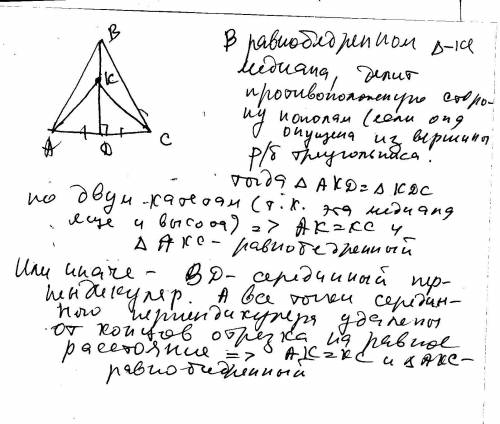 B
K
A
D
C
В равнобедренном Δ-ке
медиана, делит
противоположную сторо-
ну пополам (если она
опущена из вершины
р/б треугольника.
тогда Δ AKD = Δ KDC
по двум катетам (т.к. эта медиана
еще и высота) => AK=KC и
Δ AKC - равнобедренный
Или иначе - BD - серединный пер-
пендикуляр. А все точки середин-
ного перпендикуляра удалены
от концов отрезка на равное
расстояние => AK=KC и Δ AKC -
равнобедренный